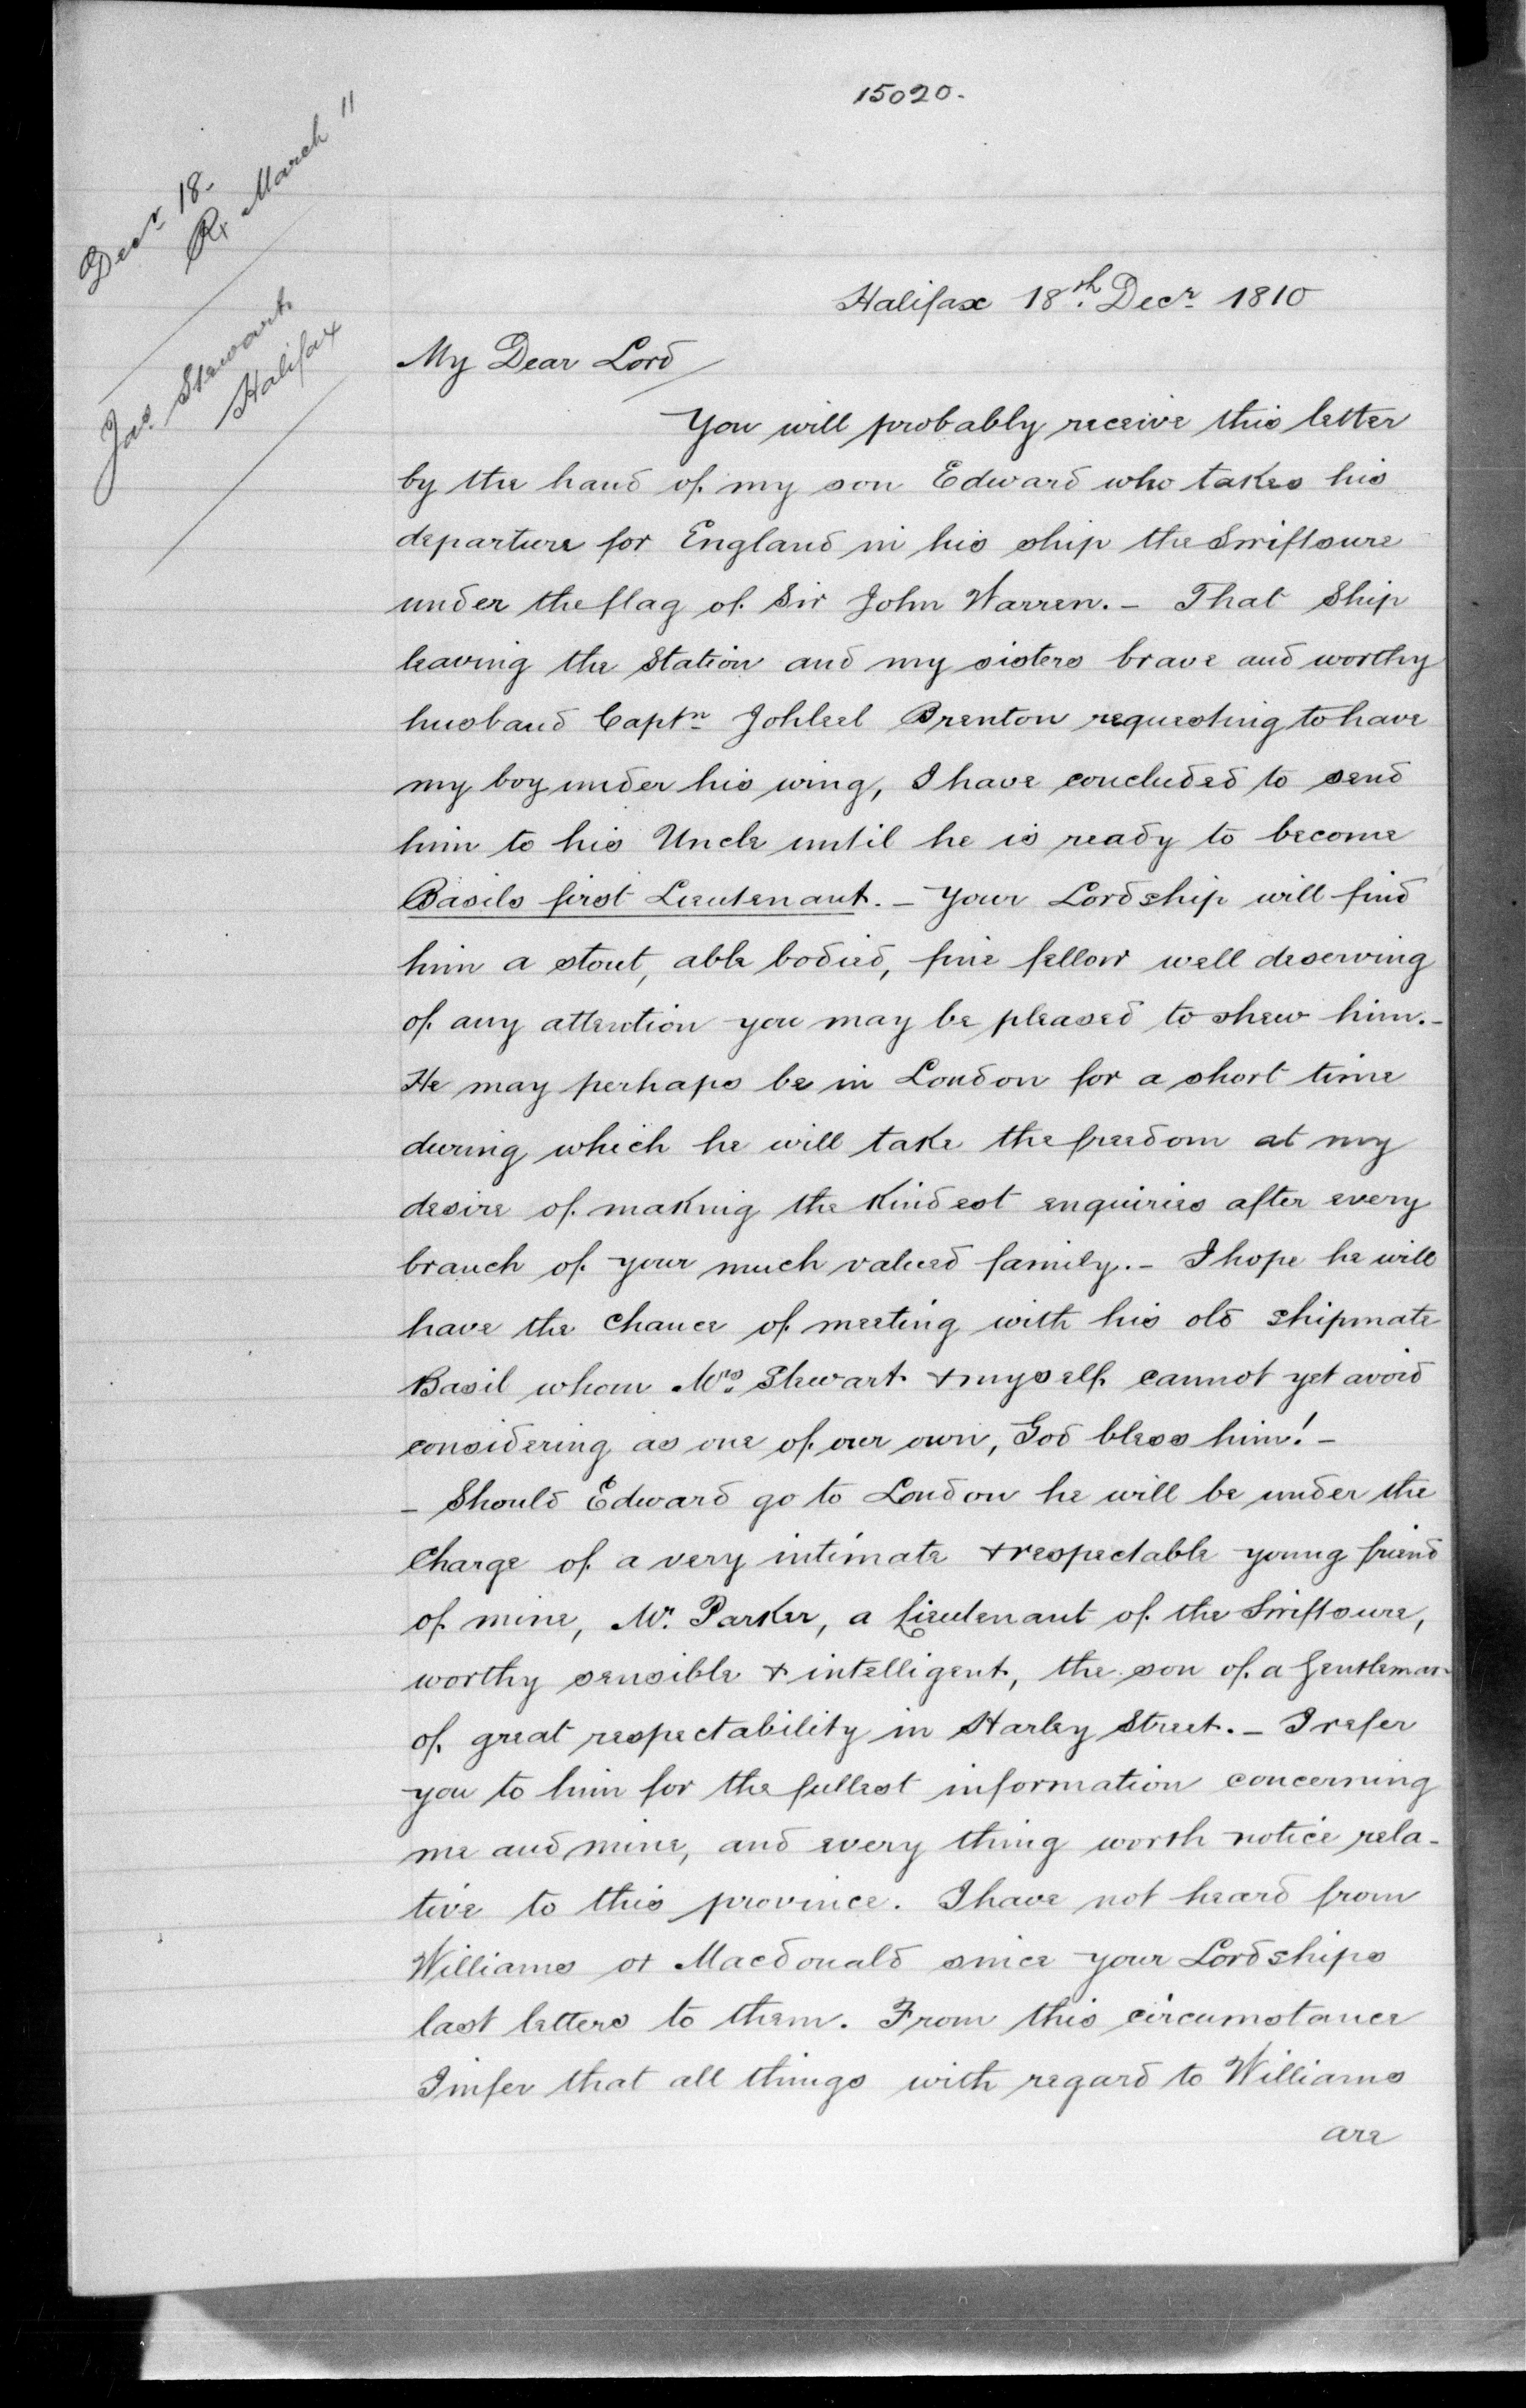 15020.
Decr 18.
Rx March 11
Jas. Stewart
Halifax
Halifax 18th. Decr 1810
My Dear Lord
You will probably receive this letter
by the hand of my son Edward who takes his
departure for England in his ship the Swiftsure
under the flag of Sir John Warren. - That Ship
leaving the Station and my sisters brave and worthy
husband Captn Jahleel Brenton requesting to have
my boy under his wing, I have concluded to send
him to his Uncle until he is ready to become
Basils first Lieutenant. - Your Lordship will find
him a stout, able bodied, fine fellow well deserving
of any attention you may be pleased to shew him. -
He may perhaps be in London for a short time
during which he will take the freedom at my
desire of making the kindest enquiries after every
branch of your much valued family. - I hope he will
have the chance of meeting with his old shipmate
Basil whom Mrs. Stewart & myself cannot yet avoid
considering as one of our own, God bless him! -
- Should Edward go to London he will be under the
Charge of a very intimate & respectable young friend
of mine, Mr. Parker, a Lieutenant of the Swiftsure,
worthy sensible & intelligent, the son of a Gentleman
of great respectability in Harley Street. - I refer
you to him for the fullest information concerning
me and mine, and every thing worth notice rela-
tive to this province. I have not heard from
Williams or Macdonald since your Lordships
last letters to them. From this circumstance
I infer that all things with regard to Williams
are